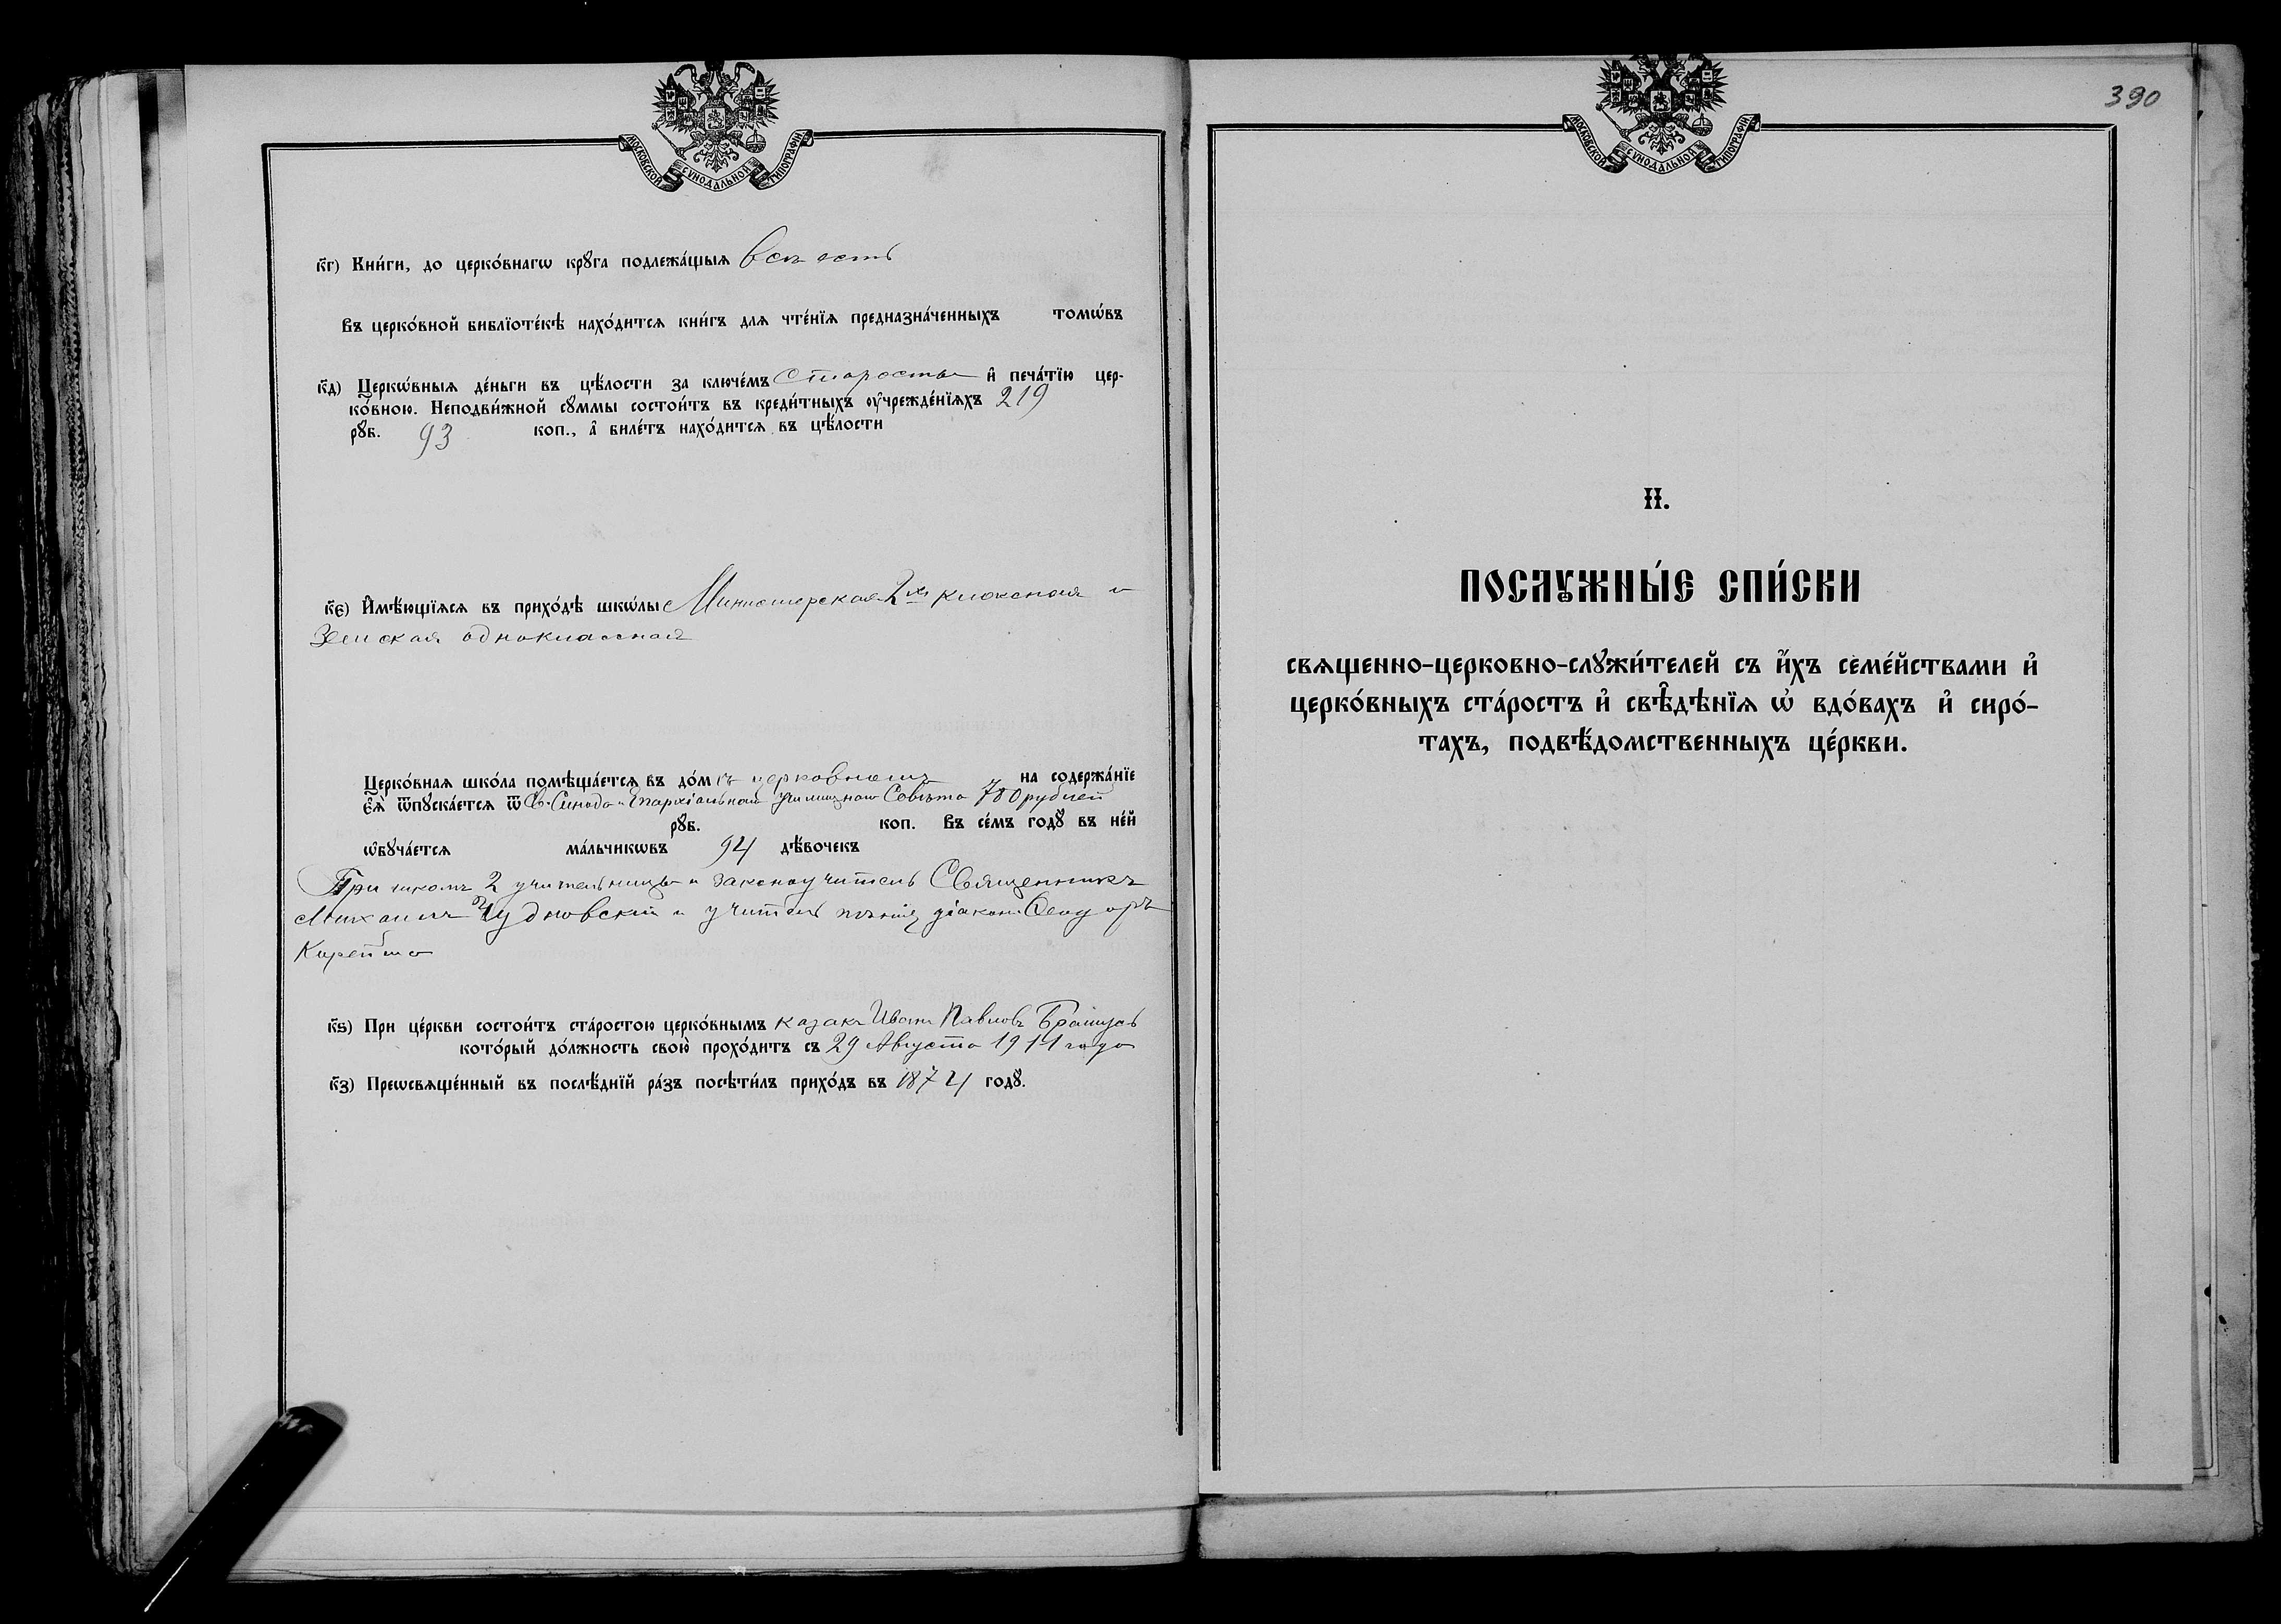 МОСКОВСКОЙ СѴНОДАЛЬНОЙ ТИПОГРАФІИ
к҃г) Кни́ги, до церко́внагѡ крꙋга подлежа́щыя всѣ есть
Въ церко́вной библїоте́кѣ нахо́дится кни́гъ для чте́нїя предназна́ченныхъ томѡ́въ
к҃д) Церкѡ́вныя де́ньги въ цѣ́лости за ключе́мъ Старосты и҆ печа́тїю цер-
ко́вною. Неподви́жной сꙋ́ммы состои́тъ въ креди́тныхъ оу҆чрежде́нїяхъ 219
рꙋб. 93 коп., а҆ биле́тъ нахо́дится въ цѣ́лости
к҃є) И҆мѣ́ющїяся въ прихо́дѣ шкѡ́лы Министерская 2хъ класная и
Земская однокласная
Церко́вная шко́ла помѣща́ется въ до́мѣ церковномъ на содержа́нїе
є҆я̀ ѿпꙋска́ется ѿ Св. Синода и Епархіальнаго училищнаго Совѣта 780 рублей
рꙋб. коп. Въ се́мъ годꙋ̀ въ не́й
ѡ҆бꙋча́ется ма́льчикѡвъ 94 дѣ́вочекъ
При школѣ 2 учительницы и законоучитель Священникъ
Михаилъ Чудновскій и учитель пѣнія діаконъ Ѳеодоръ
к҃ѕ) При це́ркви состои́тъ ста́ростою церко́внымъ казакъ Иванъ Павловъ
кото́рый до́лжность свою̀ прохо́дитъ съ 29 Августа 1911 года
к҃з) Преѡсвяще́нный въ послѣ́днїй ра́зъ посѣти́лъ прихо́дъ въ 1874 годꙋ̀.
390
МОСКОВСКОЙ СѴНОДАЛЬНОЙ ТИПОГРАФІИ
II.
ПОСЛꙊЖНЫ́Е СПИ́СКИ
священно-церковно-слꙋжи́телей съ и҆́хъ семе́йствами и҆
церко́вныхъ ста́ростъ и҆ свѣ́дѣнїя ѡ҆ вдо́вахъ и҆ сиро́-
тахъ, подвѣ́домственныхъ це́ркви.